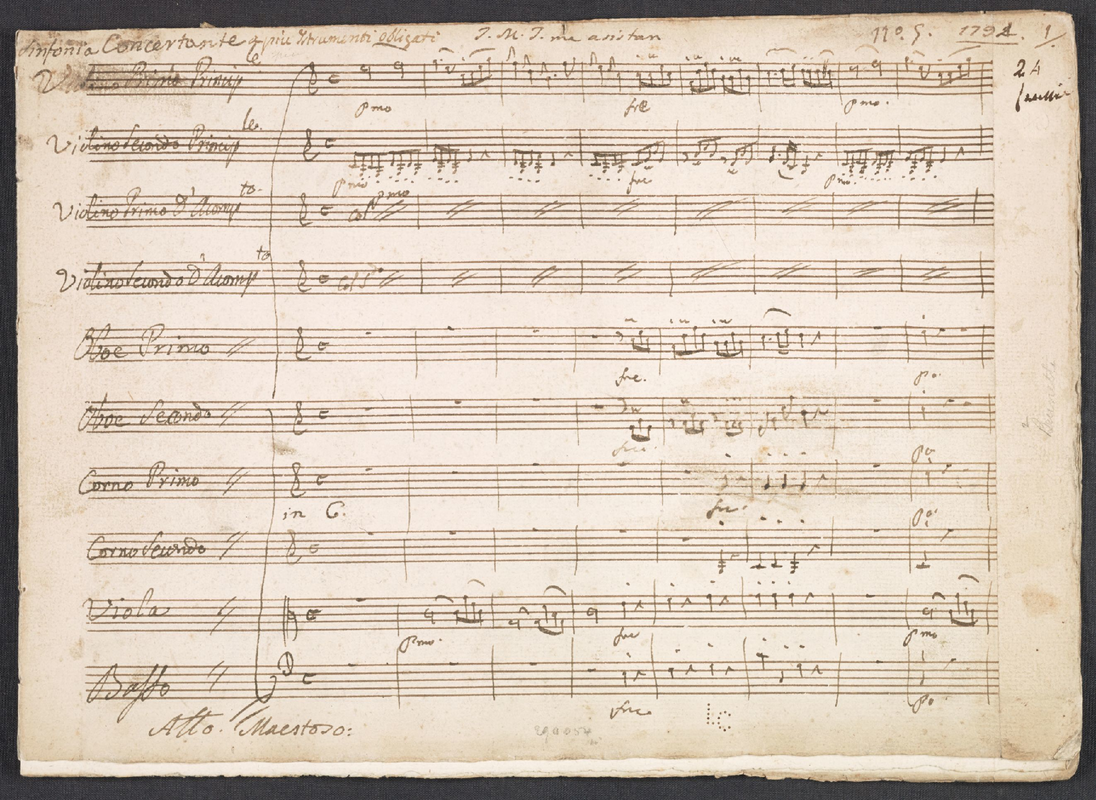 Sinfonia Concertante a piu Istrumenti obligati J. M. J. me asistan no. 5. 1794. 1
24
Violino Primo Principle
Pmo fre Pmo.
Violino Secondo Principle.
Pmo fre Pmo.
Violino Primo D'Acompto.
Col Pmo
Violino Secondo D'Acompto
Col Sdo
Oboe Primo
fre. Po.
Oboe Secondo
fre.
Corno Primo
Po.
in C. fre.
Corno Secondo
Po.
Viola
Pmo. fre Pmo
Basso
fre Po
Allo. Maestoso:
LC